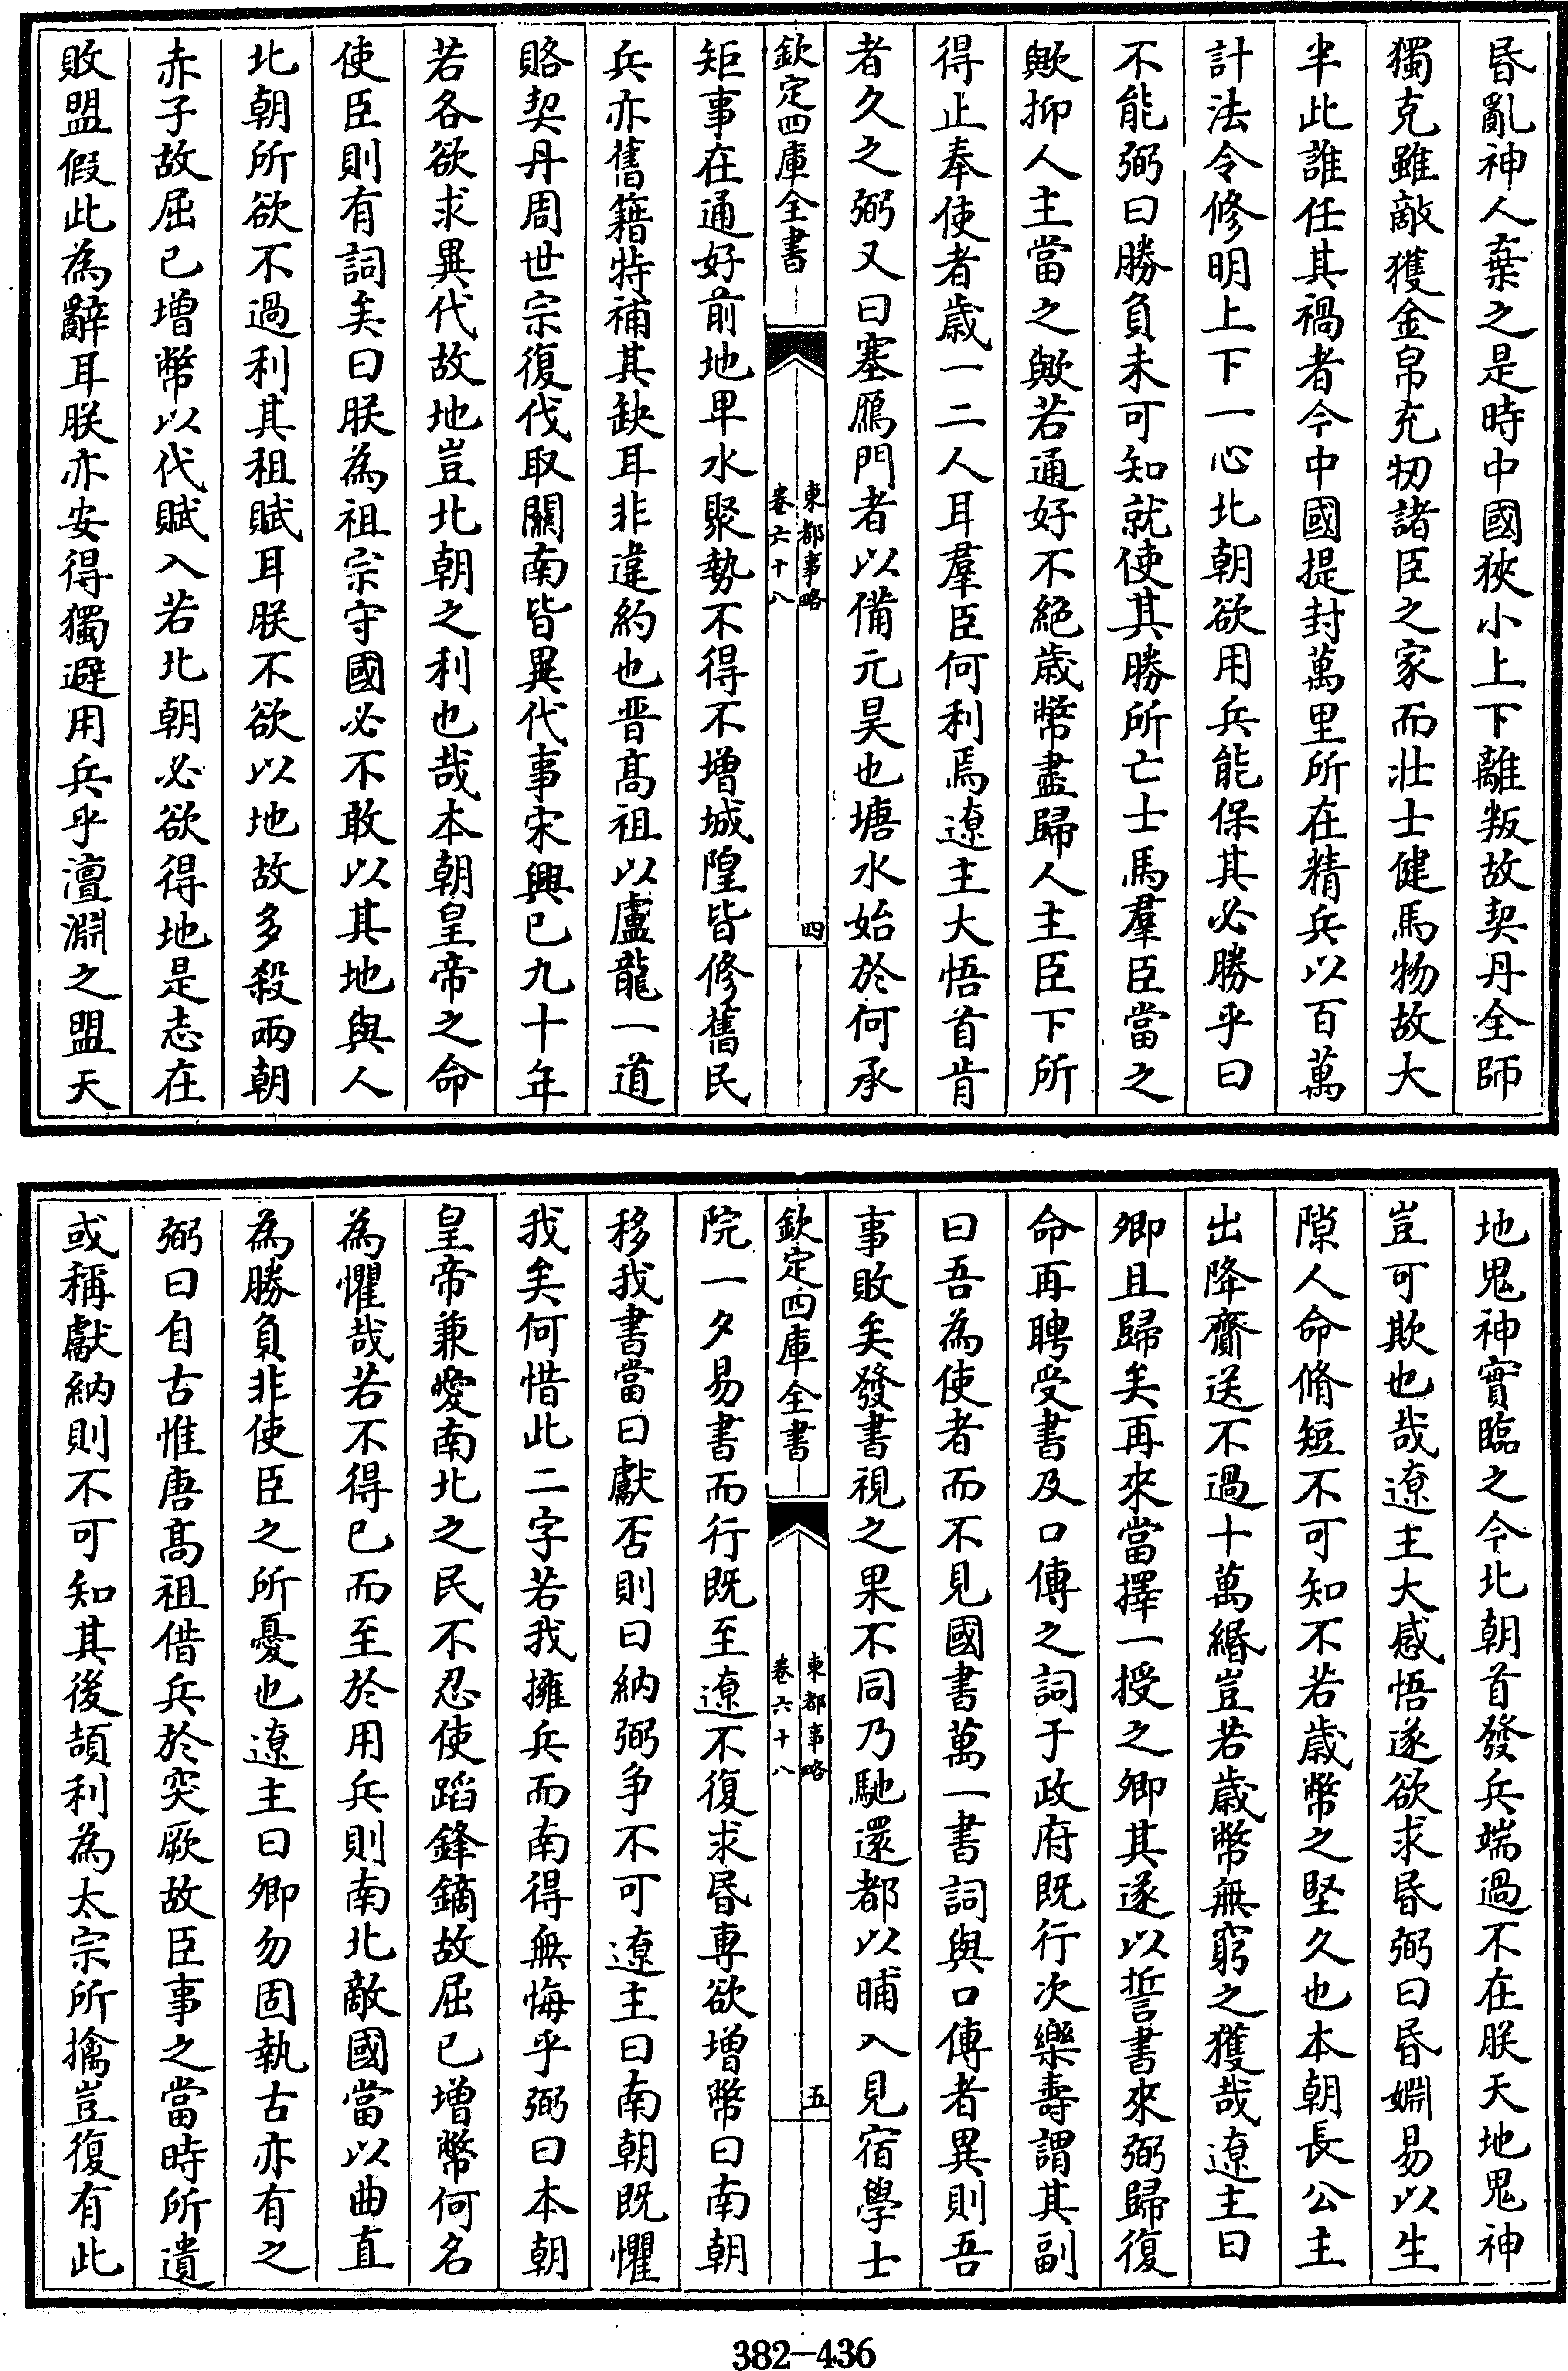 昏亂神人棄之是時中國狹小上下離叛故契丹全師
獨克雖敵獲金帛充牣諸臣之家而壮士健馬物故大
半此誰任其禍者今中國提封萬里所在精兵以百萬
計法令修明上下一心北朝欲用兵能保其必勝乎曰
不能弼曰勝負未可知就使其勝所亡士馬羣臣當之
歟抑人主當之歟若通好不絶歳幣盡歸人主臣下所
得止奉使者歳一二人耳羣臣何利焉遼主大悟首肯
者久之弼又曰塞鴈門者以備元昊也塘水始於何承
欽定四庫全書
東都事略
卷六十八
四
矩事在通好前地卑水聚勢不得不增城隍皆修舊民
兵亦舊籍特補其缺耳非違約也晋髙祖以盧龍一道
賂契丹周世宗復伐取關南皆異代事宋興已九十年
若各欲求異代故地豈北朝之利也哉本朝皇帝之命
使臣則有詞矣曰朕為祖宗守國必不敢以其地與人
北朝所欲不過利其租賦耳朕不欲以地故多殺兩朝
赤子故屈已增幣以代賦入若北朝必欲得地是志在
敗盟假此為辭耳朕亦安得獨避用兵乎澶淵之盟天
地鬼神實臨之今北朝首發兵端過不在朕天地鬼神
豈可欺也哉遼主大感悟遂欲求昏弼曰昏婣易以生
隙人命脩短不可知不若歳幣之堅久也本朝長公主
出降齎送不過十萬緡豈若歳幣無窮之獲哉遼主曰
卿且歸矣再來當擇一授之卿其遂以誓書來弼歸復
命再聘受書及口傳之詞于政府既行次樂壽謂其副
曰吾為使者而不見國書萬一書詞與口傳者異則吾
事敗矣發書視之果不同乃馳還都以晡入見宿學士
欽定四庫全書
東都事略
卷六十八
五
院一夕易書而行既至遼不復求昏專欲增幣曰南朝
移我書當曰獻否則曰納弼爭不可遼主曰南朝既懼
我矣何惜此二字若我擁兵而南得無悔乎弼曰本朝
皇帝兼愛南北之民不忍使蹈鋒鏑故屈已增幣何名
為懼哉若不得已而至於用兵則南北敵國當以曲直
為勝負非使臣之所憂也遼主曰卿勿固執古亦有之
弼曰自古惟唐髙祖借兵於突厥故臣事之當時所遺
或稱獻納則不可知其後頡利為太宗所擒豈復有此
382-436